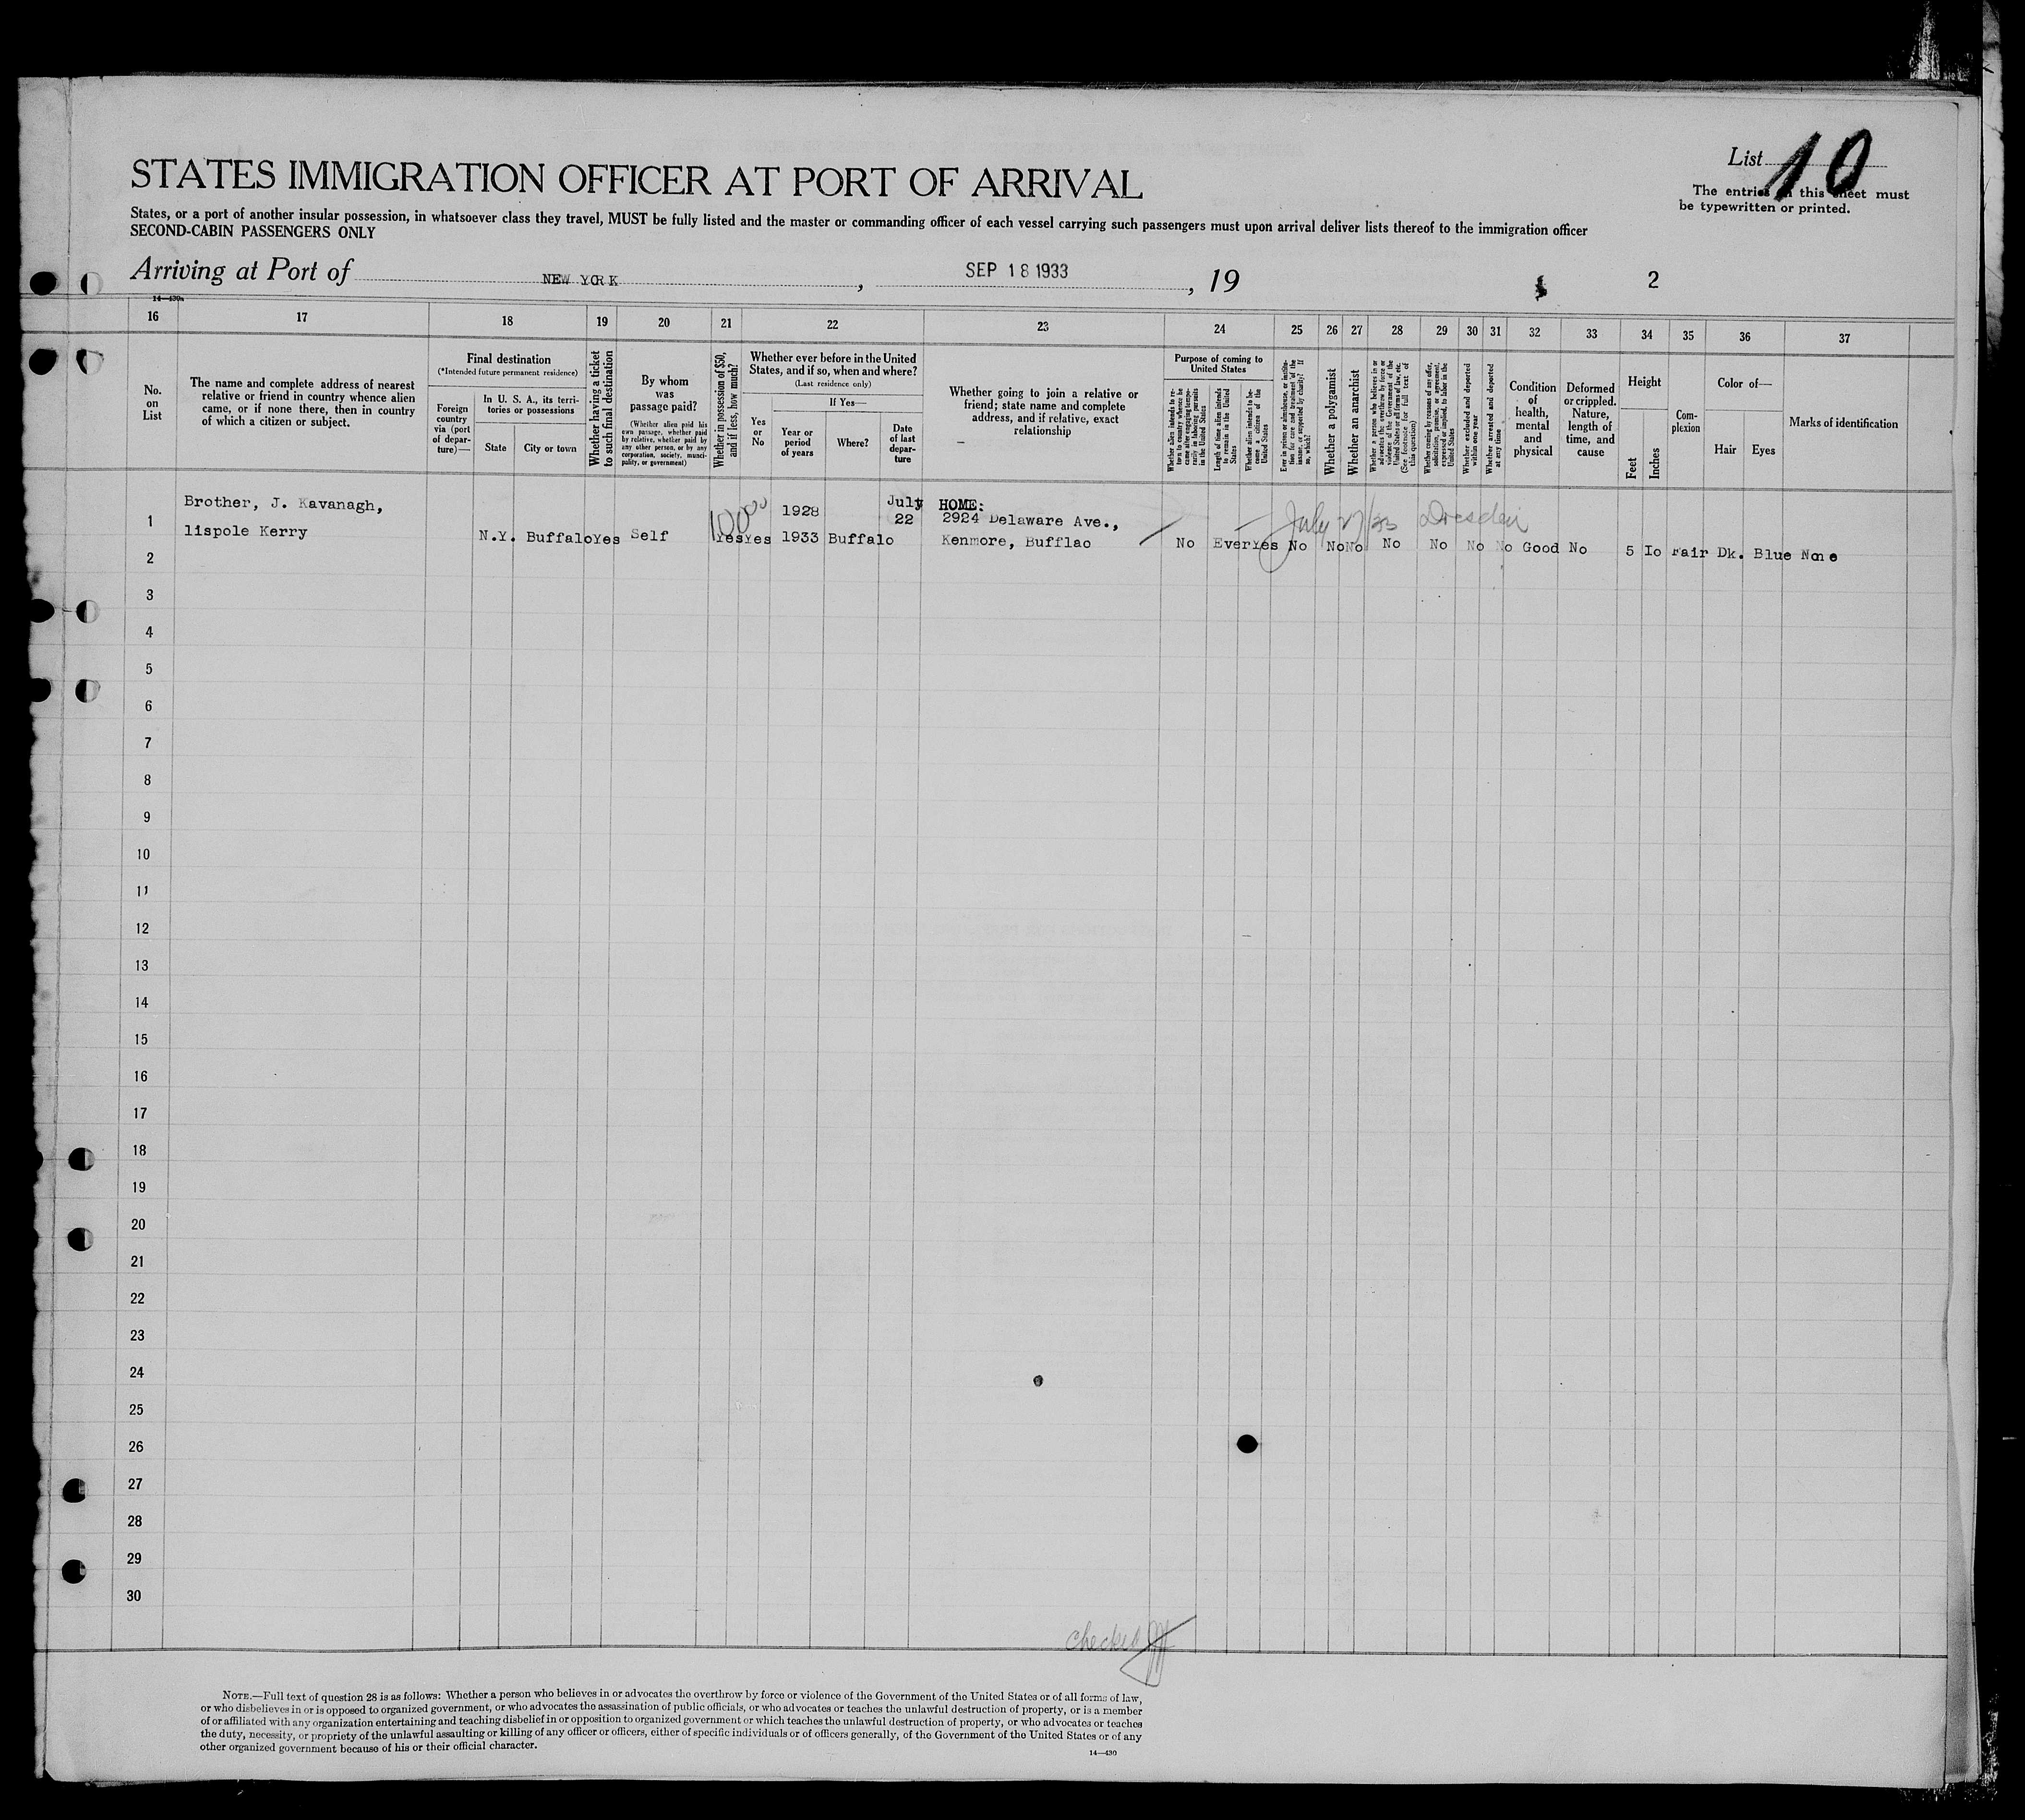 STATES IMMIGRATION OFFICER AT PORT OF ARRIVAL
List 10
The entries on this sheet must
be typewritten or printed.
States, or a port of another insular possession, in whatsoever class they travel, MUST be fully listed and the master or commanding officer of each vessel carrying such passengers must upon arrival deliver lists thereof to the immigration officer
SECOND-CABIN PASSENGERS ONLY
Arriving at Port of NEW YORK, SEP 18 1933, 19
2
14—430a
16 17 18 19 20 21 22 23 24 25 26 27 28 29 30 31 32 33 34 35 36 37
No.
on
List
The name and complete address of nearest
relative or friend in country whence alien
came, or if none there, then in country
of which a citizen or subject.
Final destination
(*Intended future permanent residence)
Foreign
country
via (port
of depar-
ture)—
In U. S. A., its terri-
tories or possessions
State
City or town
Whether having a ticket
to such final destination
By whom
was
passage paid?
(Whether alien paid his
own passage, whether paid
by relative, whether paid by
any other person, or by any
corporation, society, munici-
pality, or government)
Whether in possession of $50,
and if less, how much?
Whether ever before in the United
States, and if so, when and where?
(Last residence only)
Yes
or
No
If Yes—
Year or
period
of years
Where?
Date
of last
depar-
ture
Whether going to join a relative or
friend; state name and complete
address, and if relative, exact
relationship
Purpose of coming to
United States
Whether alien intends to re-
turn to country whence he
came after engaging tempo-
rarily in laboring pursuits
in the United States
Length of time alien intends
to remain in the United
States
Whether alien intends to be-
come a citizen of the
United States
Ever in prison or almshouse, or institu-
tion for care and treatment of the
insane, or supported by charity? If
so, which?
Whether a polygamist
Whether an anarchist
Whether a person who believes in or
advocates the overthrow by force or
violence of the Government of the
United States or all forms of law, etc.
(See footnote for full text of
this question)
Whether coming by reason of any offer,
solicitation, promise, or agreement,
expressed or implied, to labor in the
United States
Whether excluded and deported
within one year
Whether arrested and deported
at any time
Condition
of
health,
mental
and
physical
Deformed
or crippled.
Nature,
length of
time, and
cause
Height
Feet
Inches
Com-
plexion
Color of—
Hair Eyes
Marks of identification
Brother, J. Kavanagh,
lispole Kerry
N.Y. Buffalo Yes Self
100 00
Yes Yes
1928
1933 Buffalo
July
22
HOME:
2924 Delaware Ave.,
Kenmore, Bufflao
July 27/33 Dresden
No Ever Yes No No No No No No No Good No 5 Io Fair Dk. Blue None
1
2
3
4
5
6
7
8
9
10
11
12
13
14
15
16
17
18
19
20
21
22
23
24
25
26
27
28
29
30
checked
NOTE.—Full text of question 28 is as follows: Whether a person who believes in or advocates the overthrow by force or violence of the Government of the United States or of all forms of law,
or who disbelieves in or is opposed to organized government, or who advocates the assassination of public officials, or who advocates or teaches the unlawful destruction of property, or is a member
of or affiliated with any organization entertaining and teaching disbelief in or opposition to organized government or which teaches the unlawful destruction of property, or who advocates or teaches
the duty, necessity, or propriety of the unlawful assaulting or killing of any officer or officers, either of specific individuals or of officers generally, of the Government of the United States or of any
other organized government because of his or their official character.
14—430